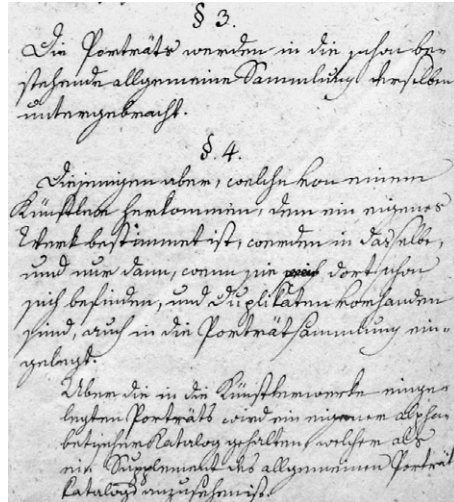 § 3.
Die Porträts werden in die schon be-
stehende allgemeine Sammlung derselben
untergebracht.
§. 4.
Diejenigen aber, welche von einem
Künstler herkommen, dem ein eigenes
Werk bestimmt ist, werden in dasselbe,
und nur dann, wenn sie dort schon
sich befinden, und Duplikaten vorhanden
sind, auch in die Porträtsammlung ein-
gelegt.
Über die in die Künstlerwerke einge-
legten Porträts wird ein eigener alpha-
betischer Katalog gehalten, welcher als
ein Supplement des allgemeinen Porträt
katalogs anzusehen ist.